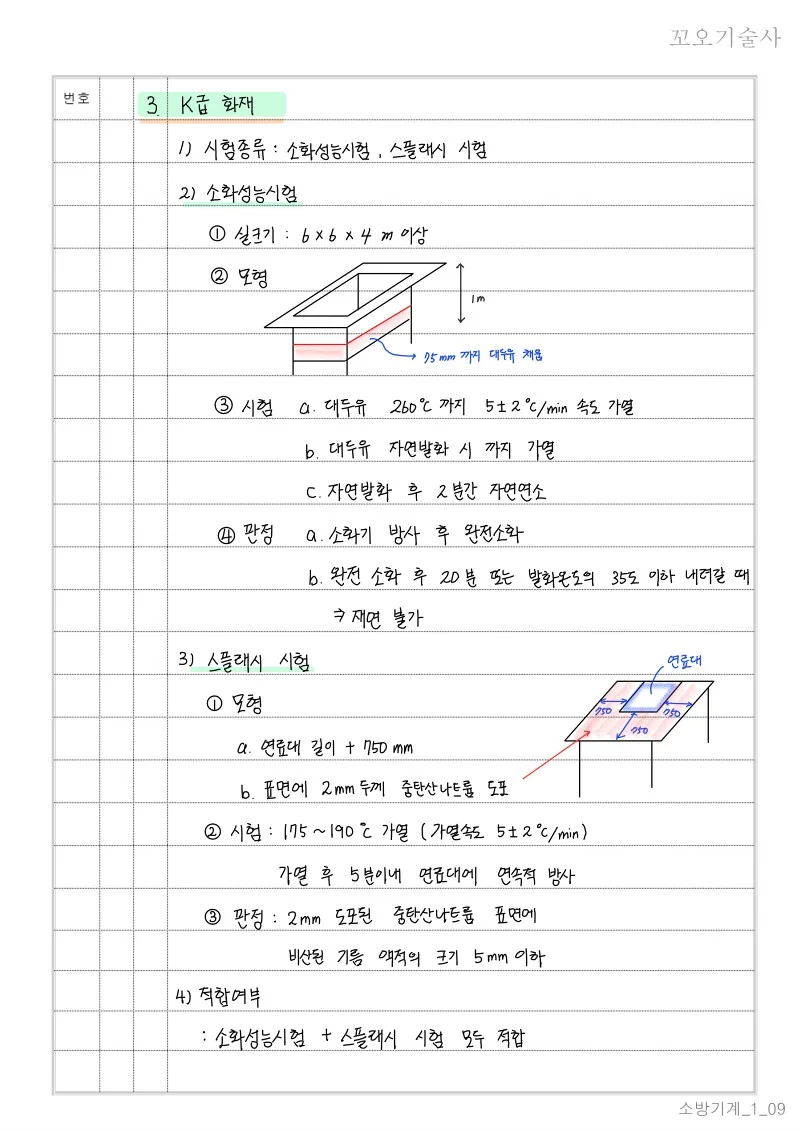 꼬오기술사
번호
3. K급 화재
1) 시험종류 : 소화성능시험, 스플래시 시험
2) 소화성능시험
① 실크기 : 6 x 6 x 4 m 이상
② 모형
1m
75mm 까지 대두유 채움
③ 시험 a. 대두유 260℃ 까지 5±2℃/min 속도 가열
b. 대두유 자연발화 시 까지 가열
c. 자연발화 후 2분간 자연연소
④ 판정 a. 소화기 방사 후 완전소화
b. 완전 소화 후 20분 또는 발화온도의 35도 이하 내려갈 때
⇒ 재연 불가
3) 스플래시 시험
연료대
① 모형
750 750
750
a. 연료대 길이 + 750mm
b. 표면에 2mm 두께 중탄산나트륨 도포
② 시험 : 175~190℃ 가열 (가열속도 5±2℃/min)
가열 후 5분이내 연료대에 연속적 방사
③ 판정 : 2mm 도포된 중탄산나트륨 표면에
비산된 기름 액적의 크기 5mm 이하
4) 적합여부
: 소화성능시험 + 스플래시 시험 모두 적합
소방기계_1_09